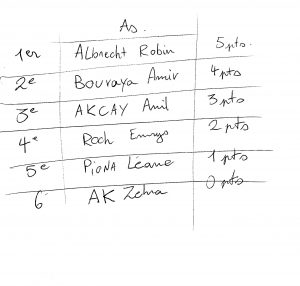 As.
1er Albrecht Robin 5 pts.
2e Bouraya Amir 4 pts
3e AKCAY Anil 3 pts
4e Roch Emrys 2 pts
5e PIONA Léane 1 pts
6 AK Zehra 0 pts